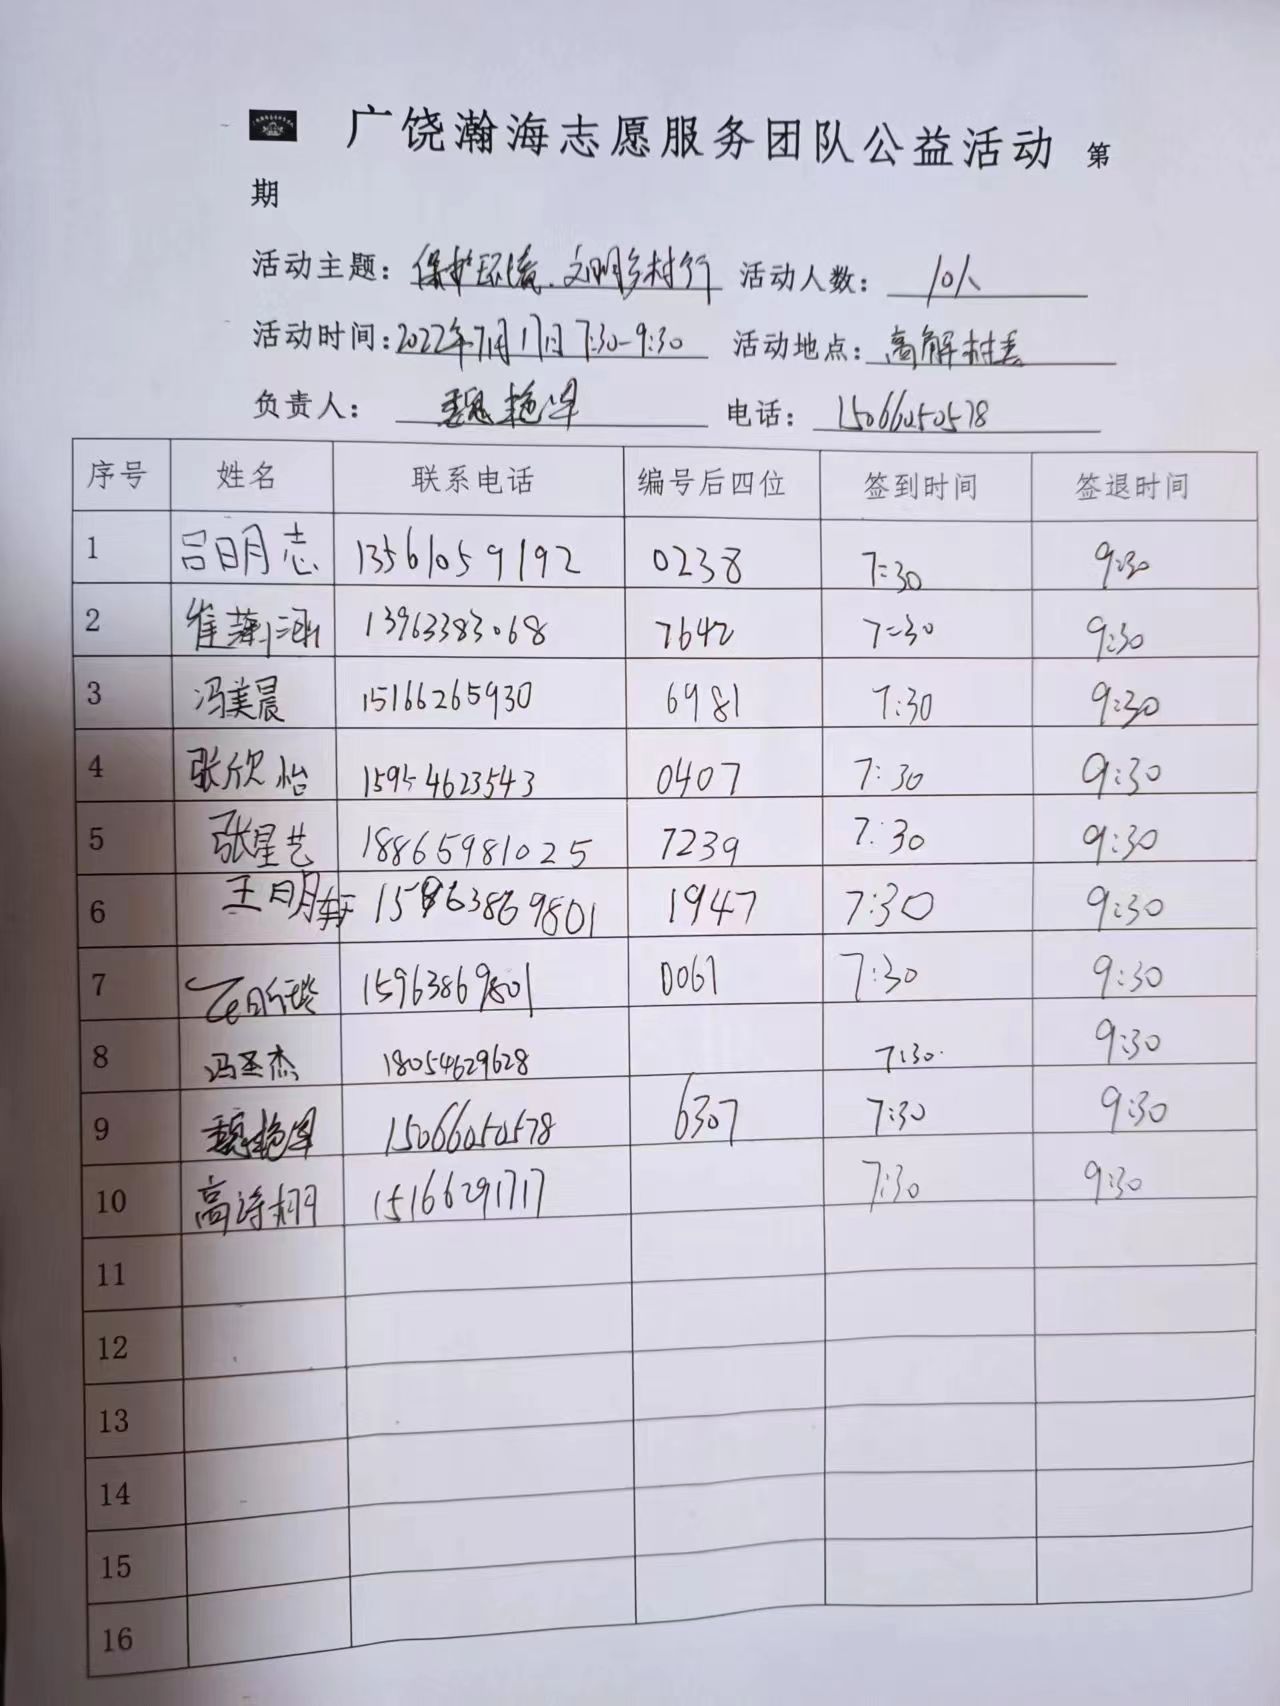 广饶瀚海志愿服务团队公益活动 第
期
活动主题：保护环境、文明乡村行 活动人数：10人
活动时间：2022年7月17日 7:30-9:30 活动地点：高解村委
负责人：魏艳泽 电话：15066050578
序号 姓名 联系电话 编号后四位 签到时间 签退时间
1 吕明志 13561059192 0238 7:30 9:30
2 崔 13963383068 7642 7:30 9:30
3 冯美晨 15166265930 6981 7:30 9:30
4 张欣怡 15954623543 0407 7:30 9:30
5 张星艺 18865981025 7239 7:30 9:30
6 王明轩 1947 7:30 9:30
7 15963869801 0061 7:30 9:30
8 冯圣杰 18054629628 7:30 9:30
9 魏艳泽 15066050578 6307 7:30 9:30
10 高诗栩 15166291717 7:30 9:30
11
12
13
14
15
16